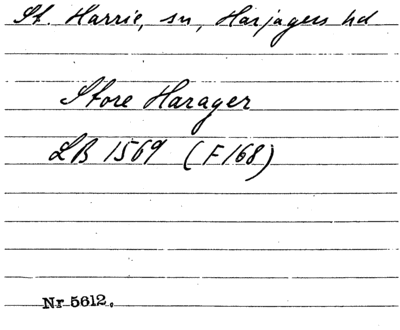 St. Harrie, sn, Harjagers hd
Store Harager
LB 1569 (F 168)
Nr 5612.